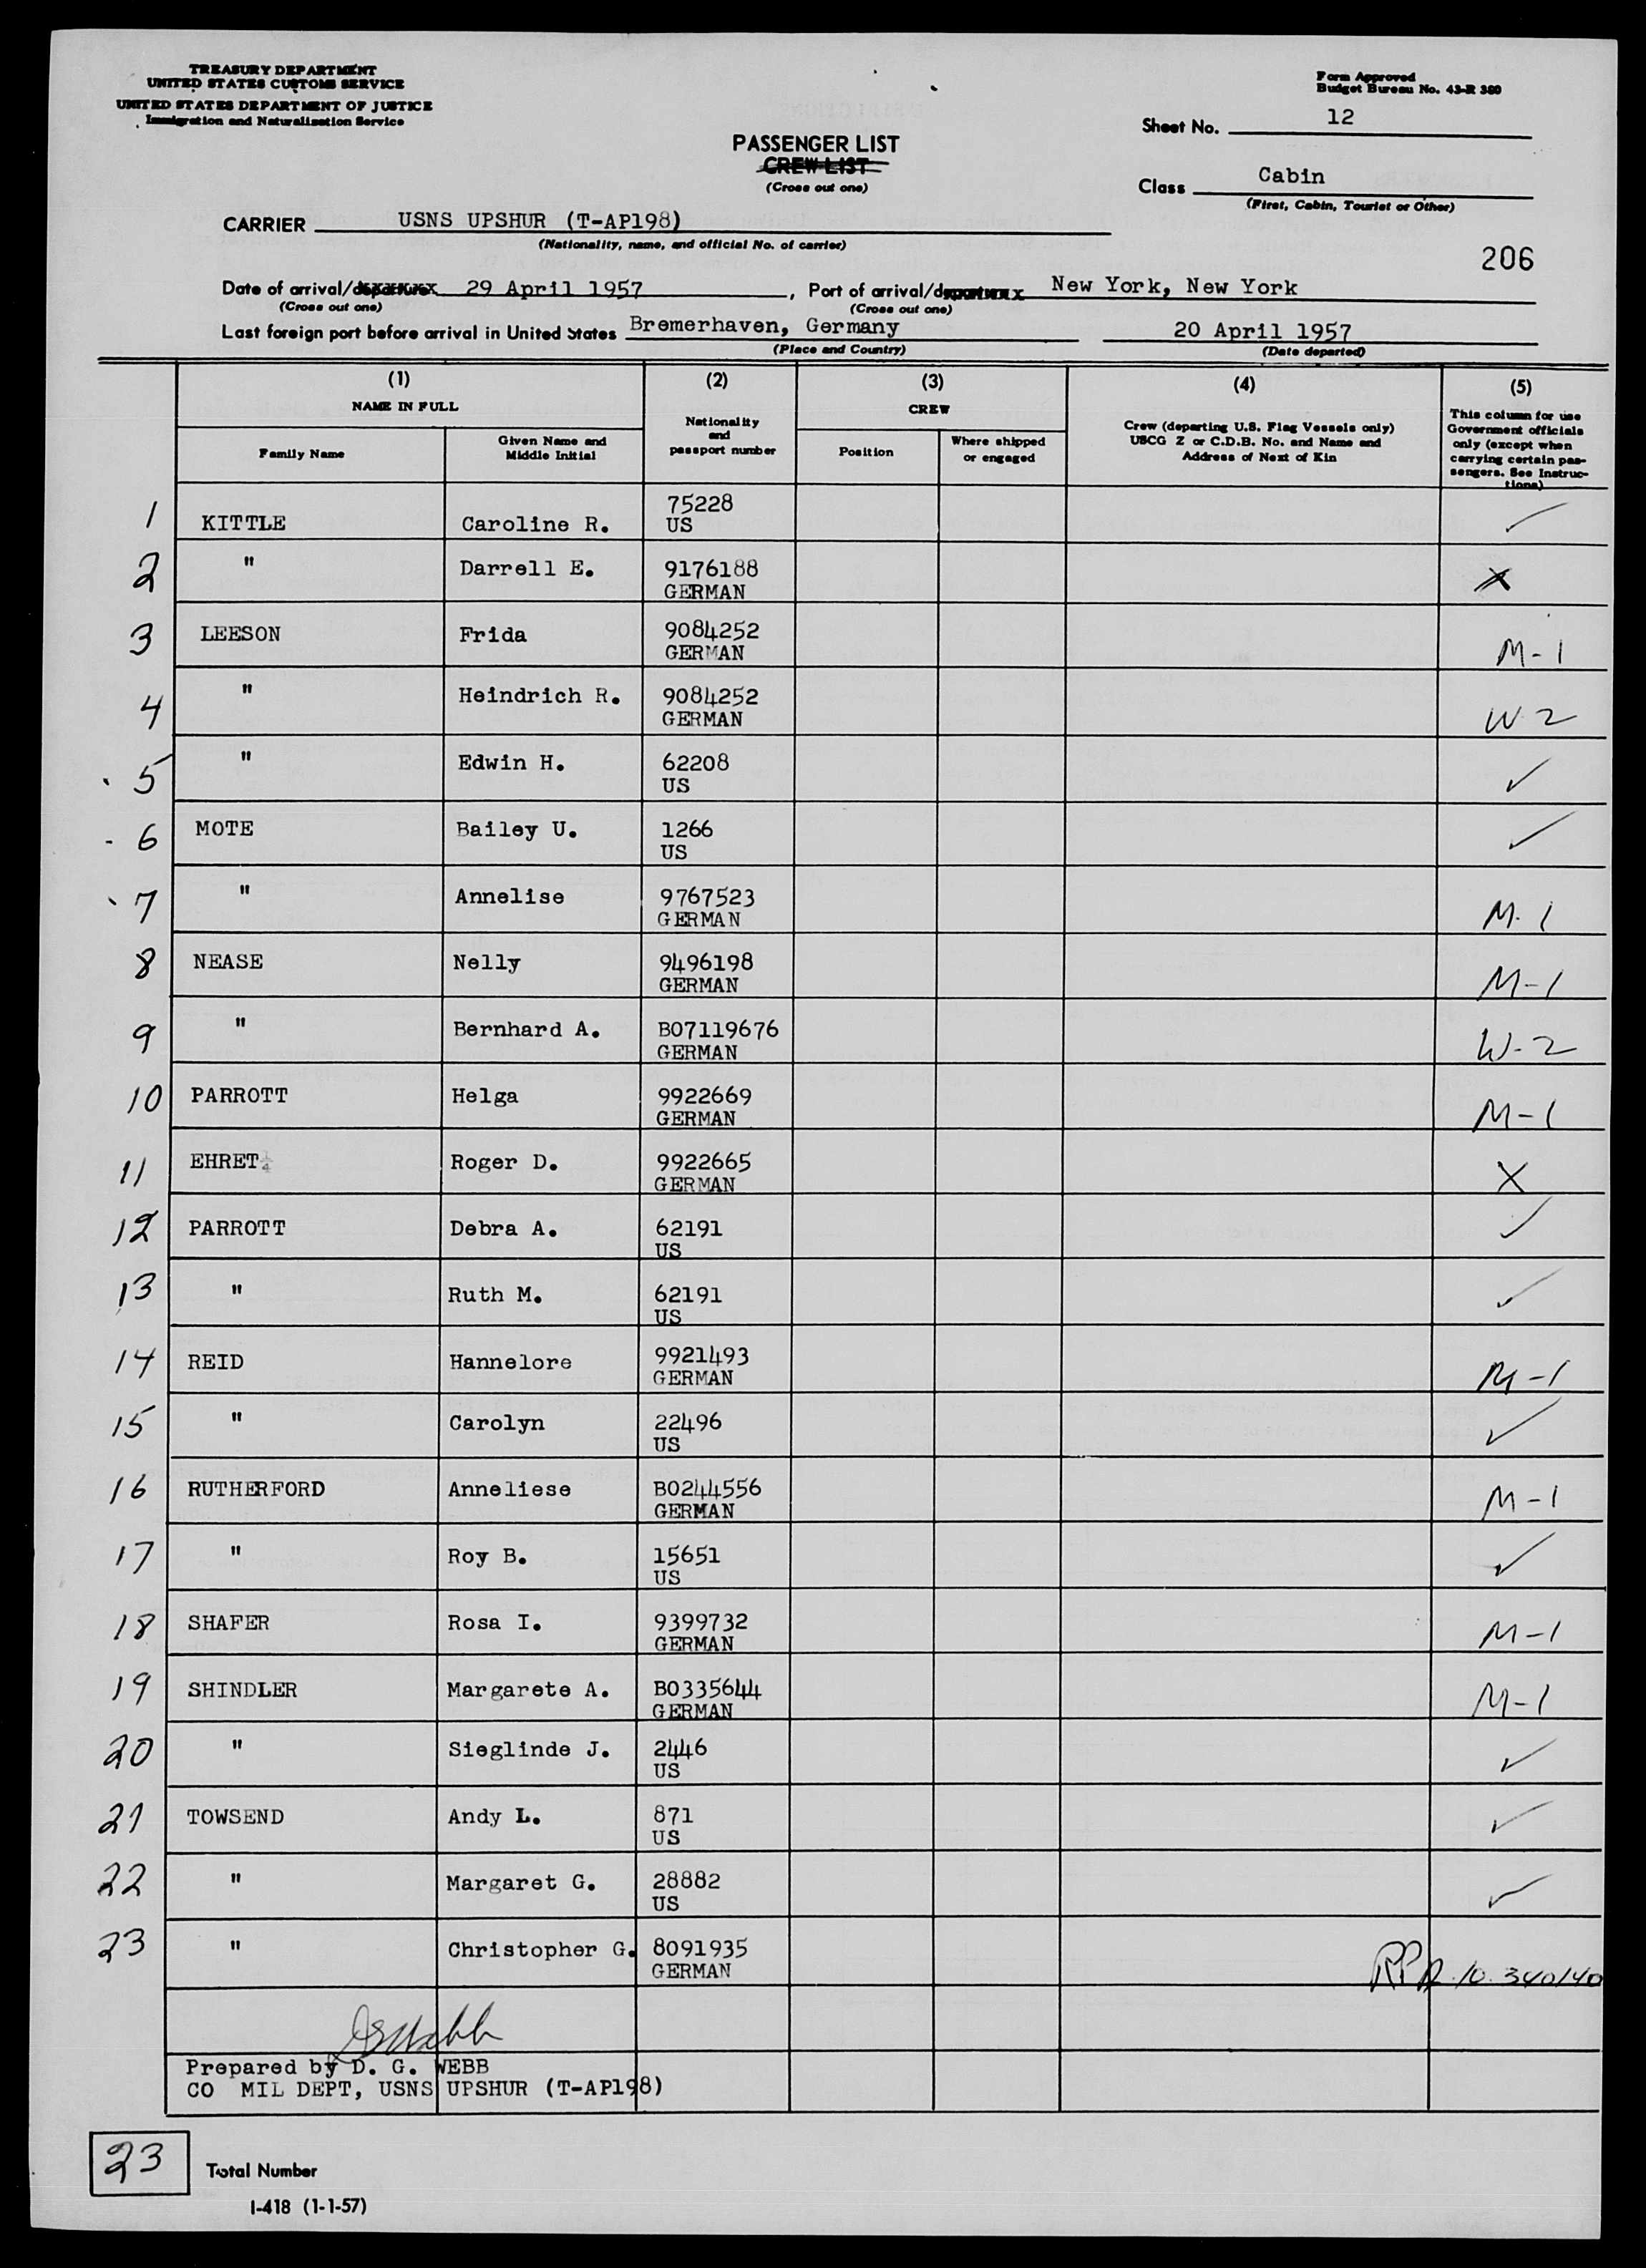 TREASURY DEPARTMENT
UNITED STATES CUSTOMS SERVICE
UNITED STATES DEPARTMENT OF JUSTICE
Immigration and Naturalization Service
Form Approved
Budget Bureau No. 43-R 380
Sheet No. 12
PASSENGER LIST
CREW LIST
(Cross out one)
Class Cabin
(First, Cabin, Tourist or Other)
CARRIER USNS UPSHUR (T-AP198)
(Nationality, name, and official No. of carrier)
206
Date of arrival/departure 29 April 1957, Port of arrival/departure New York, New York
(Cross out one) (Cross out one)
Last foreign port before arrival in United States Bremerhaven, Germany 20 April 1957
(Place and Country) (Date departed)
(1) (2) (3) (4) (5)
NAME IN FULL
Family Name
Given Name and
Middle Initial
Nationality
and
passport number
CREW
Position
Where shipped
or engaged
Crew (departing U.S. Flag Vessels only)
USCG Z or C.D.B. No. and Name and
Address of Next of Kin
This column for use
Government officials
only (except when
carrying certain pas-
sengers. See Instruc-
tions)
1 KITTLE Caroline R. 75228
US ✓
2 " Darrell E. 9176188
GERMAN X
3 LEESON Frida 9084252
GERMAN M-1
4 " Heindrich R. 9084252
GERMAN W 2
5 " Edwin H. 62208
US ✓
6 MOTE Bailey U. 1266
US ✓
7 " Annelise 9767523
GERMAN M-1
8 NEASE Nelly 9496198
GERMAN M-1
9 " Bernhard A. B07119676
GERMAN W-2
10 PARROTT Helga 9922669
GERMAN M-1
11 EHRET Roger D. 9922665
GERMAN X
12 PARROTT Debra A. 62191
US ✓
13 " Ruth M. 62191
US ✓
14 REID Hannelore 9921493
GERMAN M-1
15 " Carolyn 22496
US ✓
16 RUTHERFORD Anneliese B0244556
GERMAN M-1
17 " Roy B. 15651
US ✓
18 SHAFER Rosa I. 9399732
GERMAN M-1
19 SHINDLER Margarete A. B0335644
GERMAN M-1
20 " Sieglinde J. 2446
US ✓
21 TOWSEND Andy L. 871
US ✓
22 " Margaret G. 28882
US ✓
23 " Christopher G. 8091935
GERMAN RP A 10 340140
DGWebb
Prepared by D. G. WEBB
CO MIL DEPT, USNS UPSHUR (T-AP198)
23 Total Number
I-418 (1-1-57)